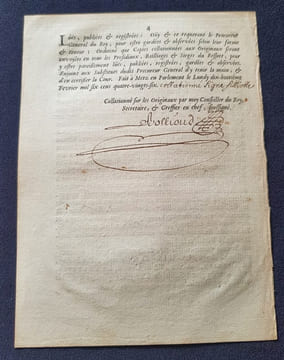 4
Lûës, publiées & regiſtrées: Oüy & ce requerant le Procureur
General du Roy, pour eſtre gardées & obſervées ſelon leur forme
& teneur: Ordonne que Copies collationnées aux Originaux ſeront
envoyées en tous les Preſidiaux, Bailliages & Sieges du Reſſort, pour
y eſtre pareillement lûës, publiées, regiſtrées, gardées & obſervées.
Enjoint aux Subſtituts dudit Procureur General d'y tenir la main, &
d'en certifier la Cour. Fait à Metz en Parlement le Lundy dix-huitiéme
Février mil ſix cens quatre-vingts-ſix. collationné Signé
Collationné ſur les Originaux par moy Conſeiller du Roy,
Secretaire, & Greffier en chef, ſouſſigné.